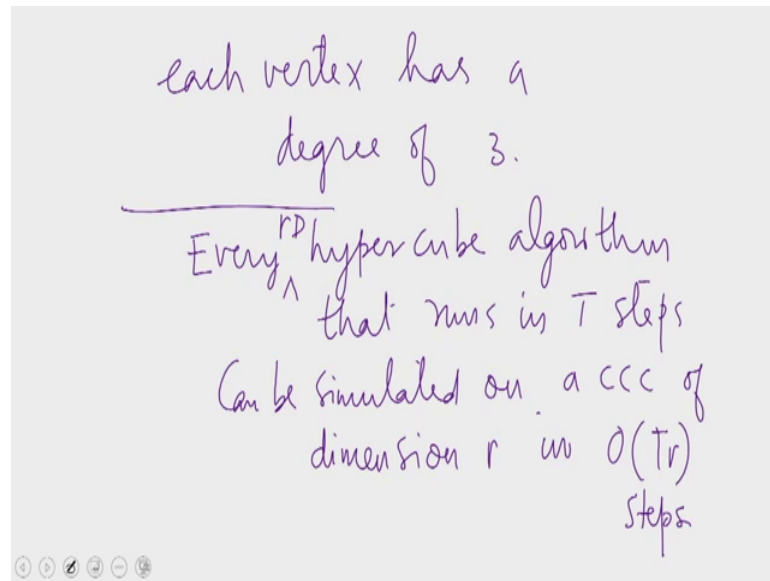 each vertex has a
degree of 3.
Every rD hypercube algorithm
that runs in T steps
Can be simulated on a CCC of
dimension r in O(Tr)
steps